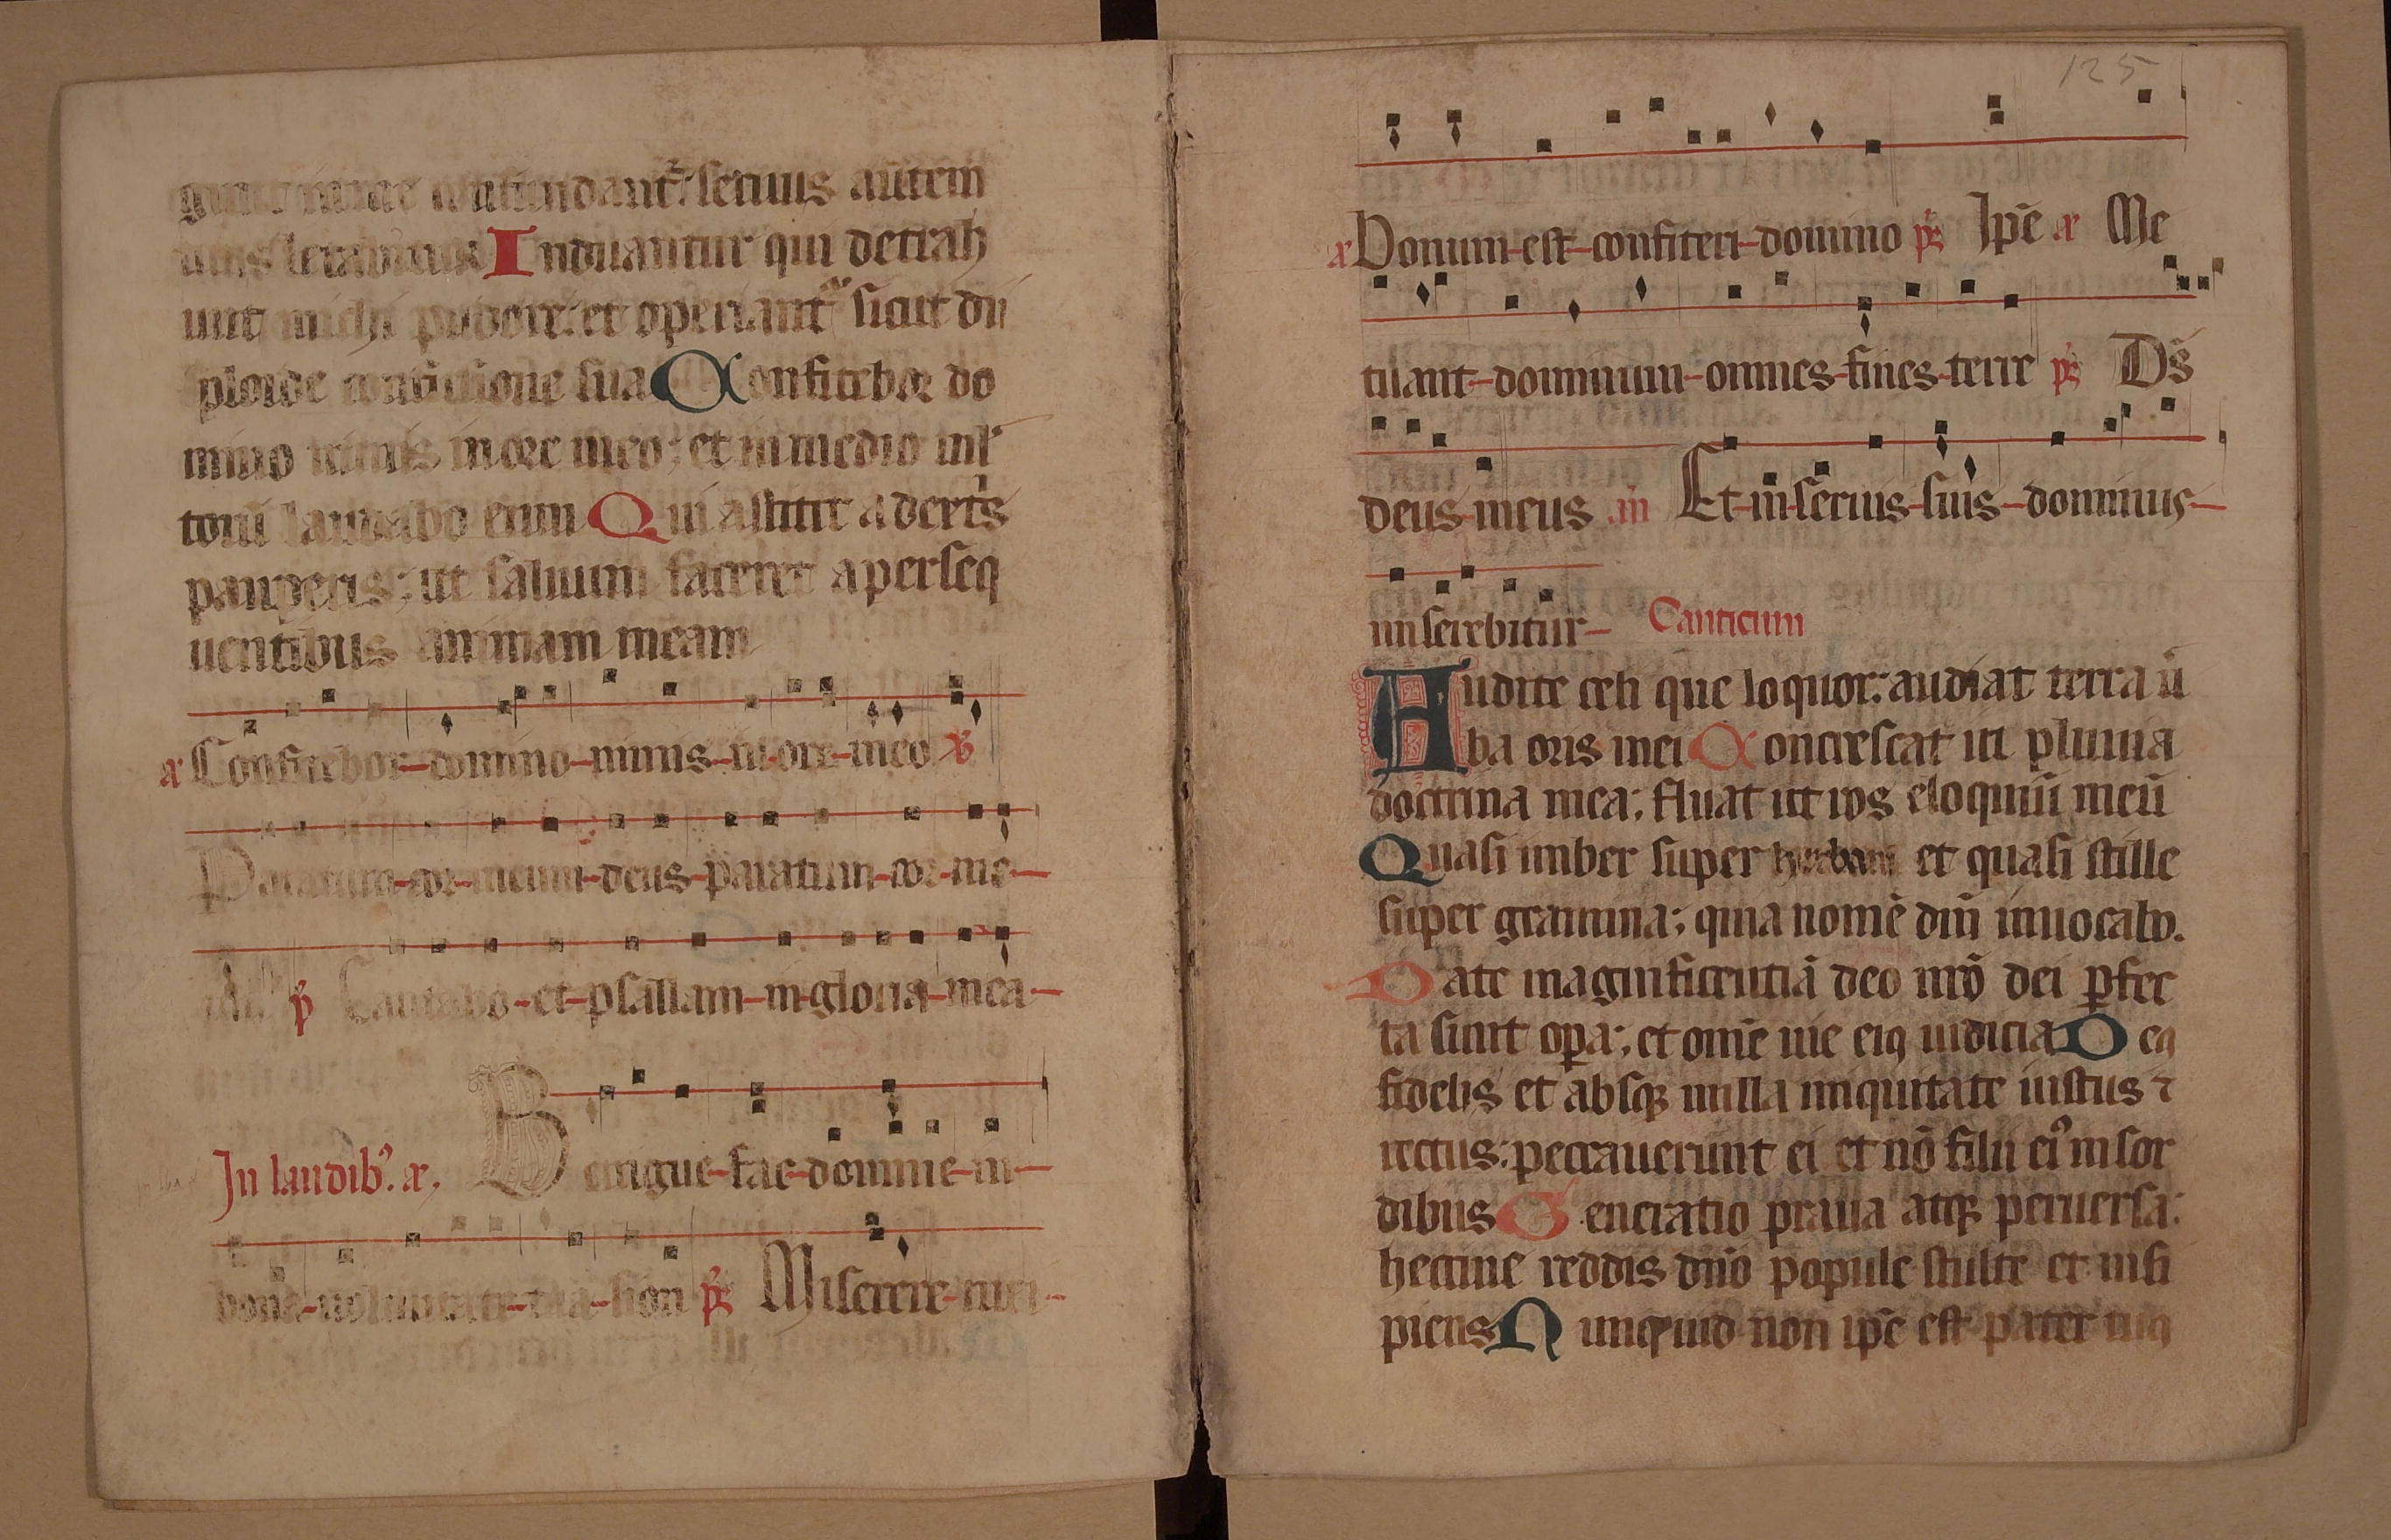 gunt in me confundant᷑: seruus autem
uus letabitur Induantur qui detrah
unt michi pudore: et operiant᷑ sicut di
ploide confusione sua Confitebor do
mino nimis in ore meo; et in medio ml̕
torū laudabo eum Qui astitit a dextȓs
pauperis; ut saluam faceret a perseq
uentibus animam meam
a Confitebor-domino-nimis-in-ore-meo ℣
Paratum-cor-meum-deus-paratum-cor-me-
um p̕ Cantabo-et-psallam-in-gloria-mea-
In laudibꝫ. a. Benigne-fac-domine-in-
bona-uoluntate-tua-sion ps̕ Miserere-mei-
125
a Bonum-est-confiteri-domino ps̕ Ip̄e a Me
tuant-dominum-omnes-fines-terre ps̕ Ds̄
deus-meus in Et-in-seruis-suis-dominus-
miserebitur- Canticum
Audite celi que loquor: audiat terra ū
ba oris mei Concrescat ut pluuia
doctrina mea; fluat ut ros eloquiū meū
Quasi imber super herbam et quasi stille
super gramina; quia nomē dn̄i inuocabo.
Date magnificentiā deo nr̄o dei ꝑfec
ta sunt oꝑa; et om̄e uie eiꝯ iudicia Deꝯ
fidelis et absqꝫ ulla iniquitate iustus ⁊
rectus: peccauerunt ei et nō filii eiꝰ in sor
dibus Generatio praua atqꝫ peruersa:
heccine reddis dn̄o popule stulte et insi
piens Nunquid non ip̄e est pater tuꝯ